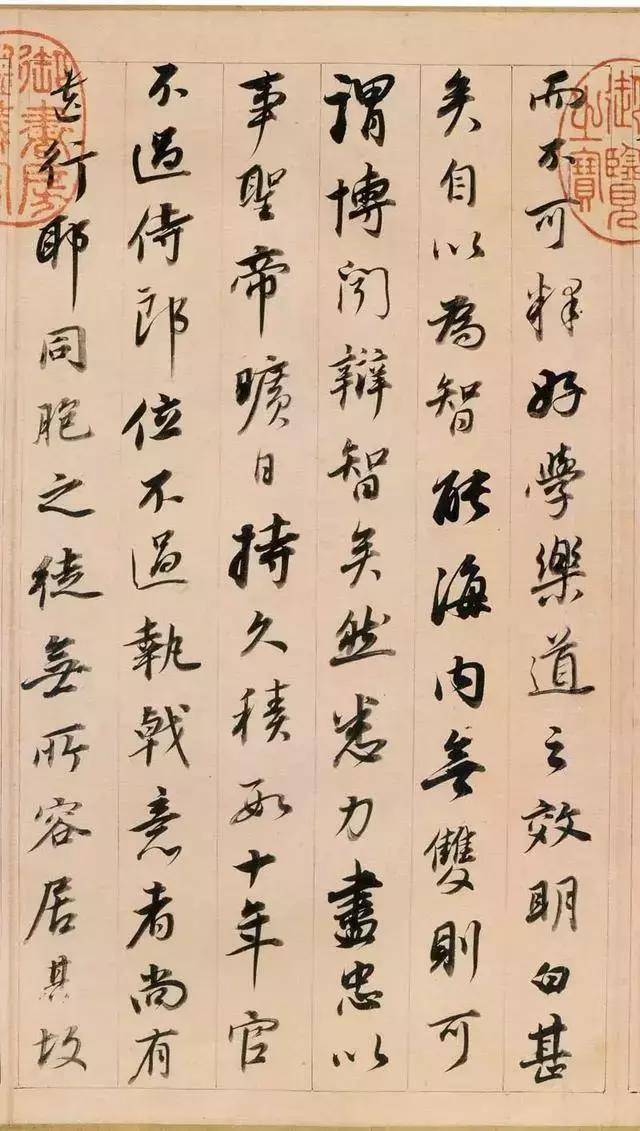 御覽之寶
而不可釋好學樂道之效明白甚
矣自以為智能海内無雙則可
謂博聞辯智矣然悉力盡忠以
事聖帝曠日持久積數十年官
不過侍郎位不過執戟意者尚有
遺行耶同胞之徒無所容居其故
御書房